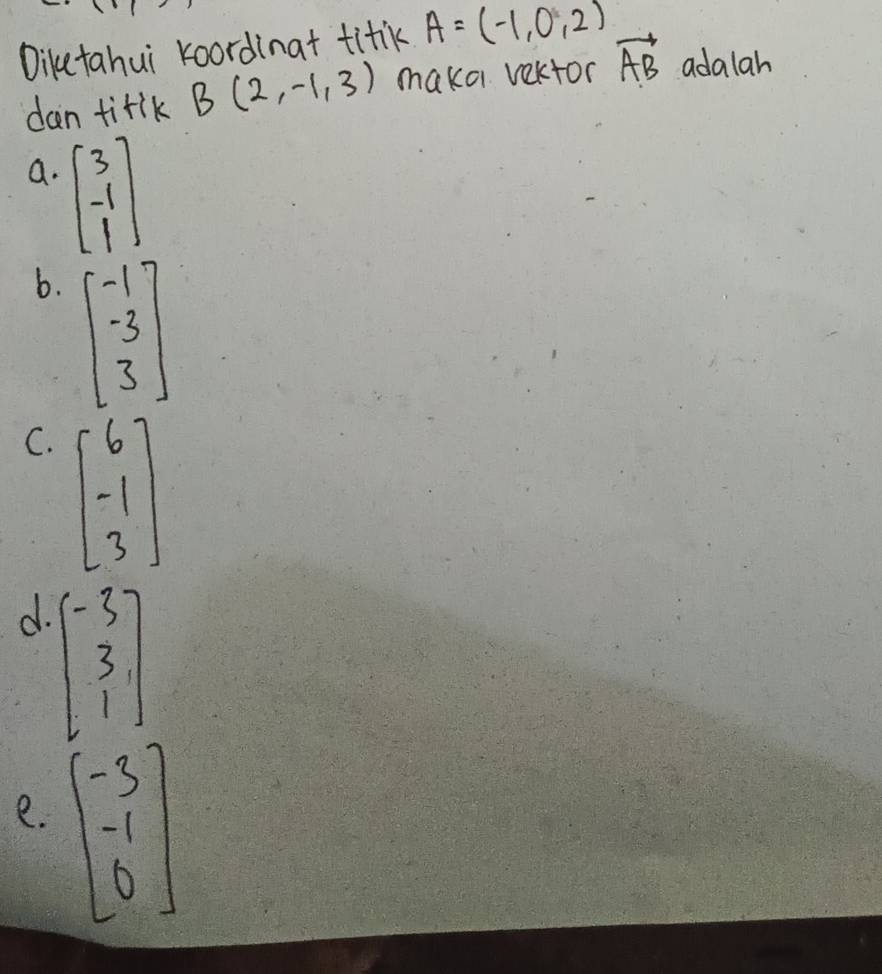 Diketahui koordinat titik A = (-1,0,2)
dan titik B (2,-1,3) maka vektor \overrightarrow{AB} adalah
a. [3
-1
1]
b. [-1
-3
3]
c. [6
-1
3]
d. [-3
3
1]
e. [-3
-1
0]